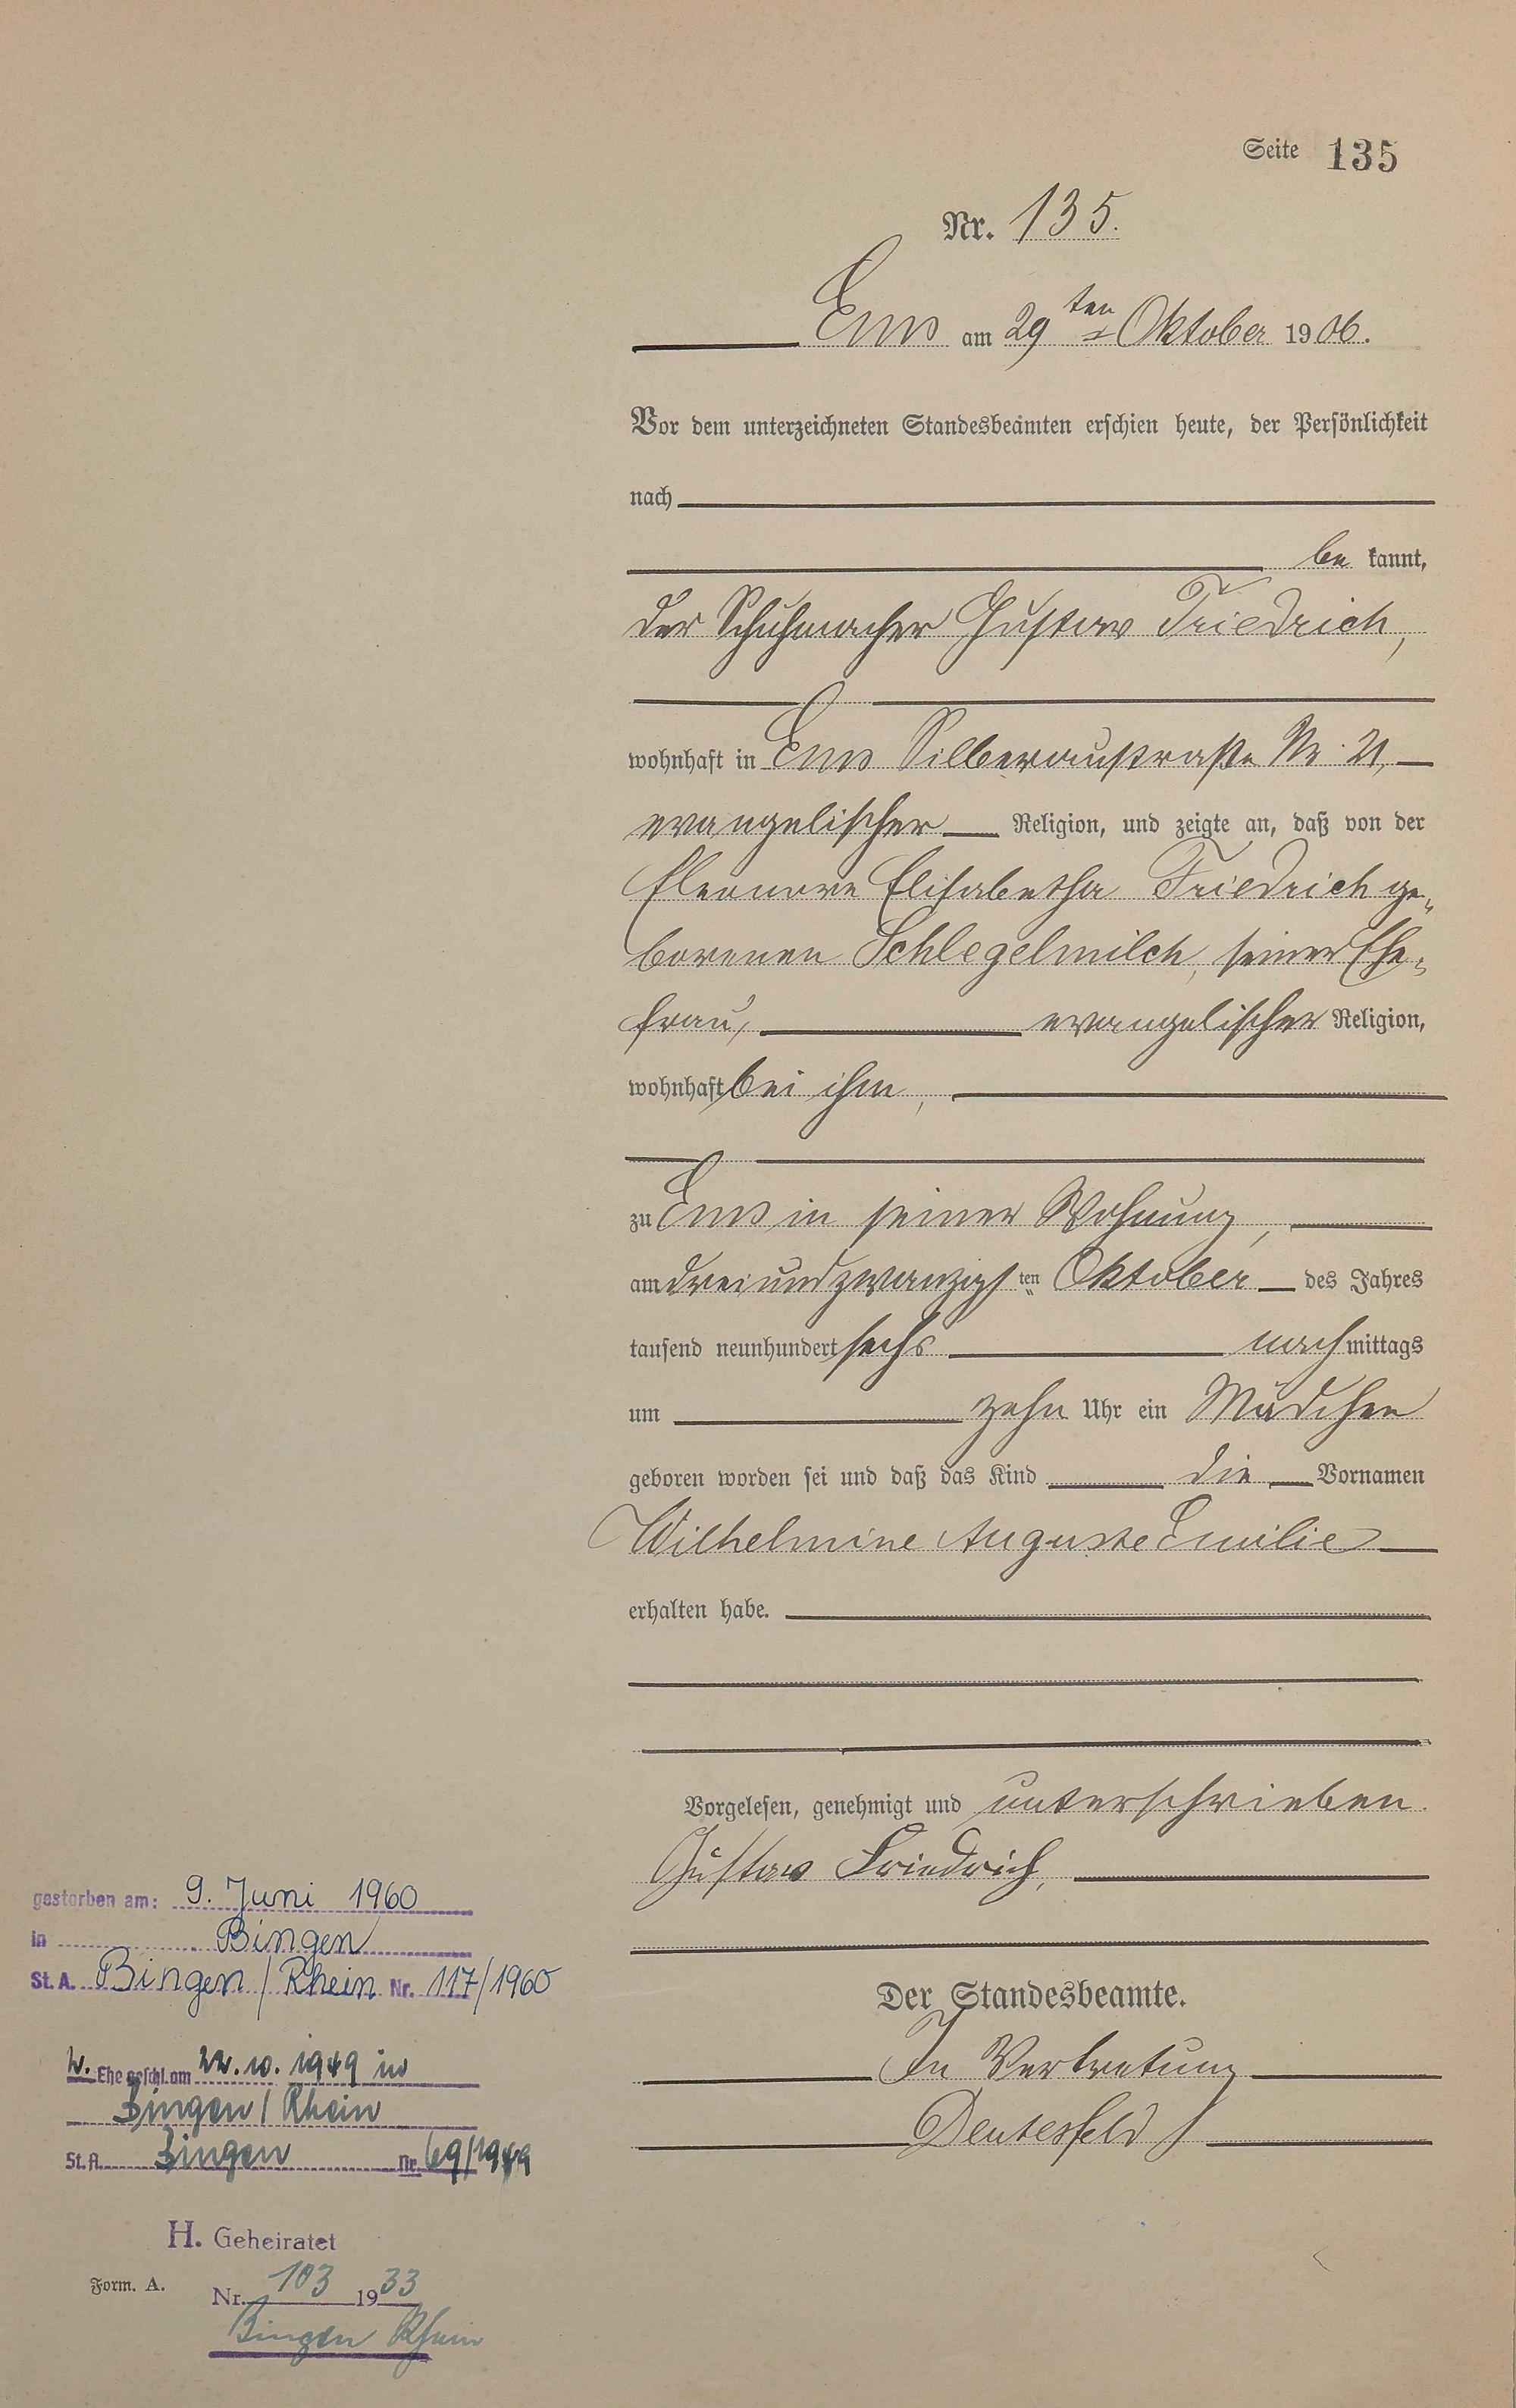 Seite 135
Nr. 135.
Ems am 29ten Oktober 1906.
Vor dem unterzeichneten Standesbeamten erschien heute, der Persönlichkeit
nach
be kannt,
der Schuhmacher Gustav Friedrich,
wohnhaft in Ems Silberaustraße Nr. 21,
evangelischer Religion, und zeigte an, daß von der
Eleonore Elisabetha Friedrich ge-
borenen Schlegelmilch, seiner Ehe-
frau, evangelischer Religion,
wohnhaft bei ihm,
zu Ems in seiner Wohnung,
am dreiundzwanzigsten Oktober des Jahres
tausend neunhundert sechs nachmittags
um zehn Uhr ein Mädchen
geboren worden sei und daß das Kind die Vornamen
Wilhelmine Auguste Emilie
erhalten habe.
Vorgelesen, genehmigt und unterschrieben.
Gustav Friedrich,
Der Standesbeamte.
In Vertretung
gestorben am: 9. Juni 1960
in Bingen
St. A. Bingen / Rhein Nr. 117/1960
2. Ehe geschl. am 22.10.1949 in
Bingen / Rhein
St. A. Bingen Nr. 69/1949
H. Geheiratet
Form. A. Nr. 103 1933
Bingen Rhein